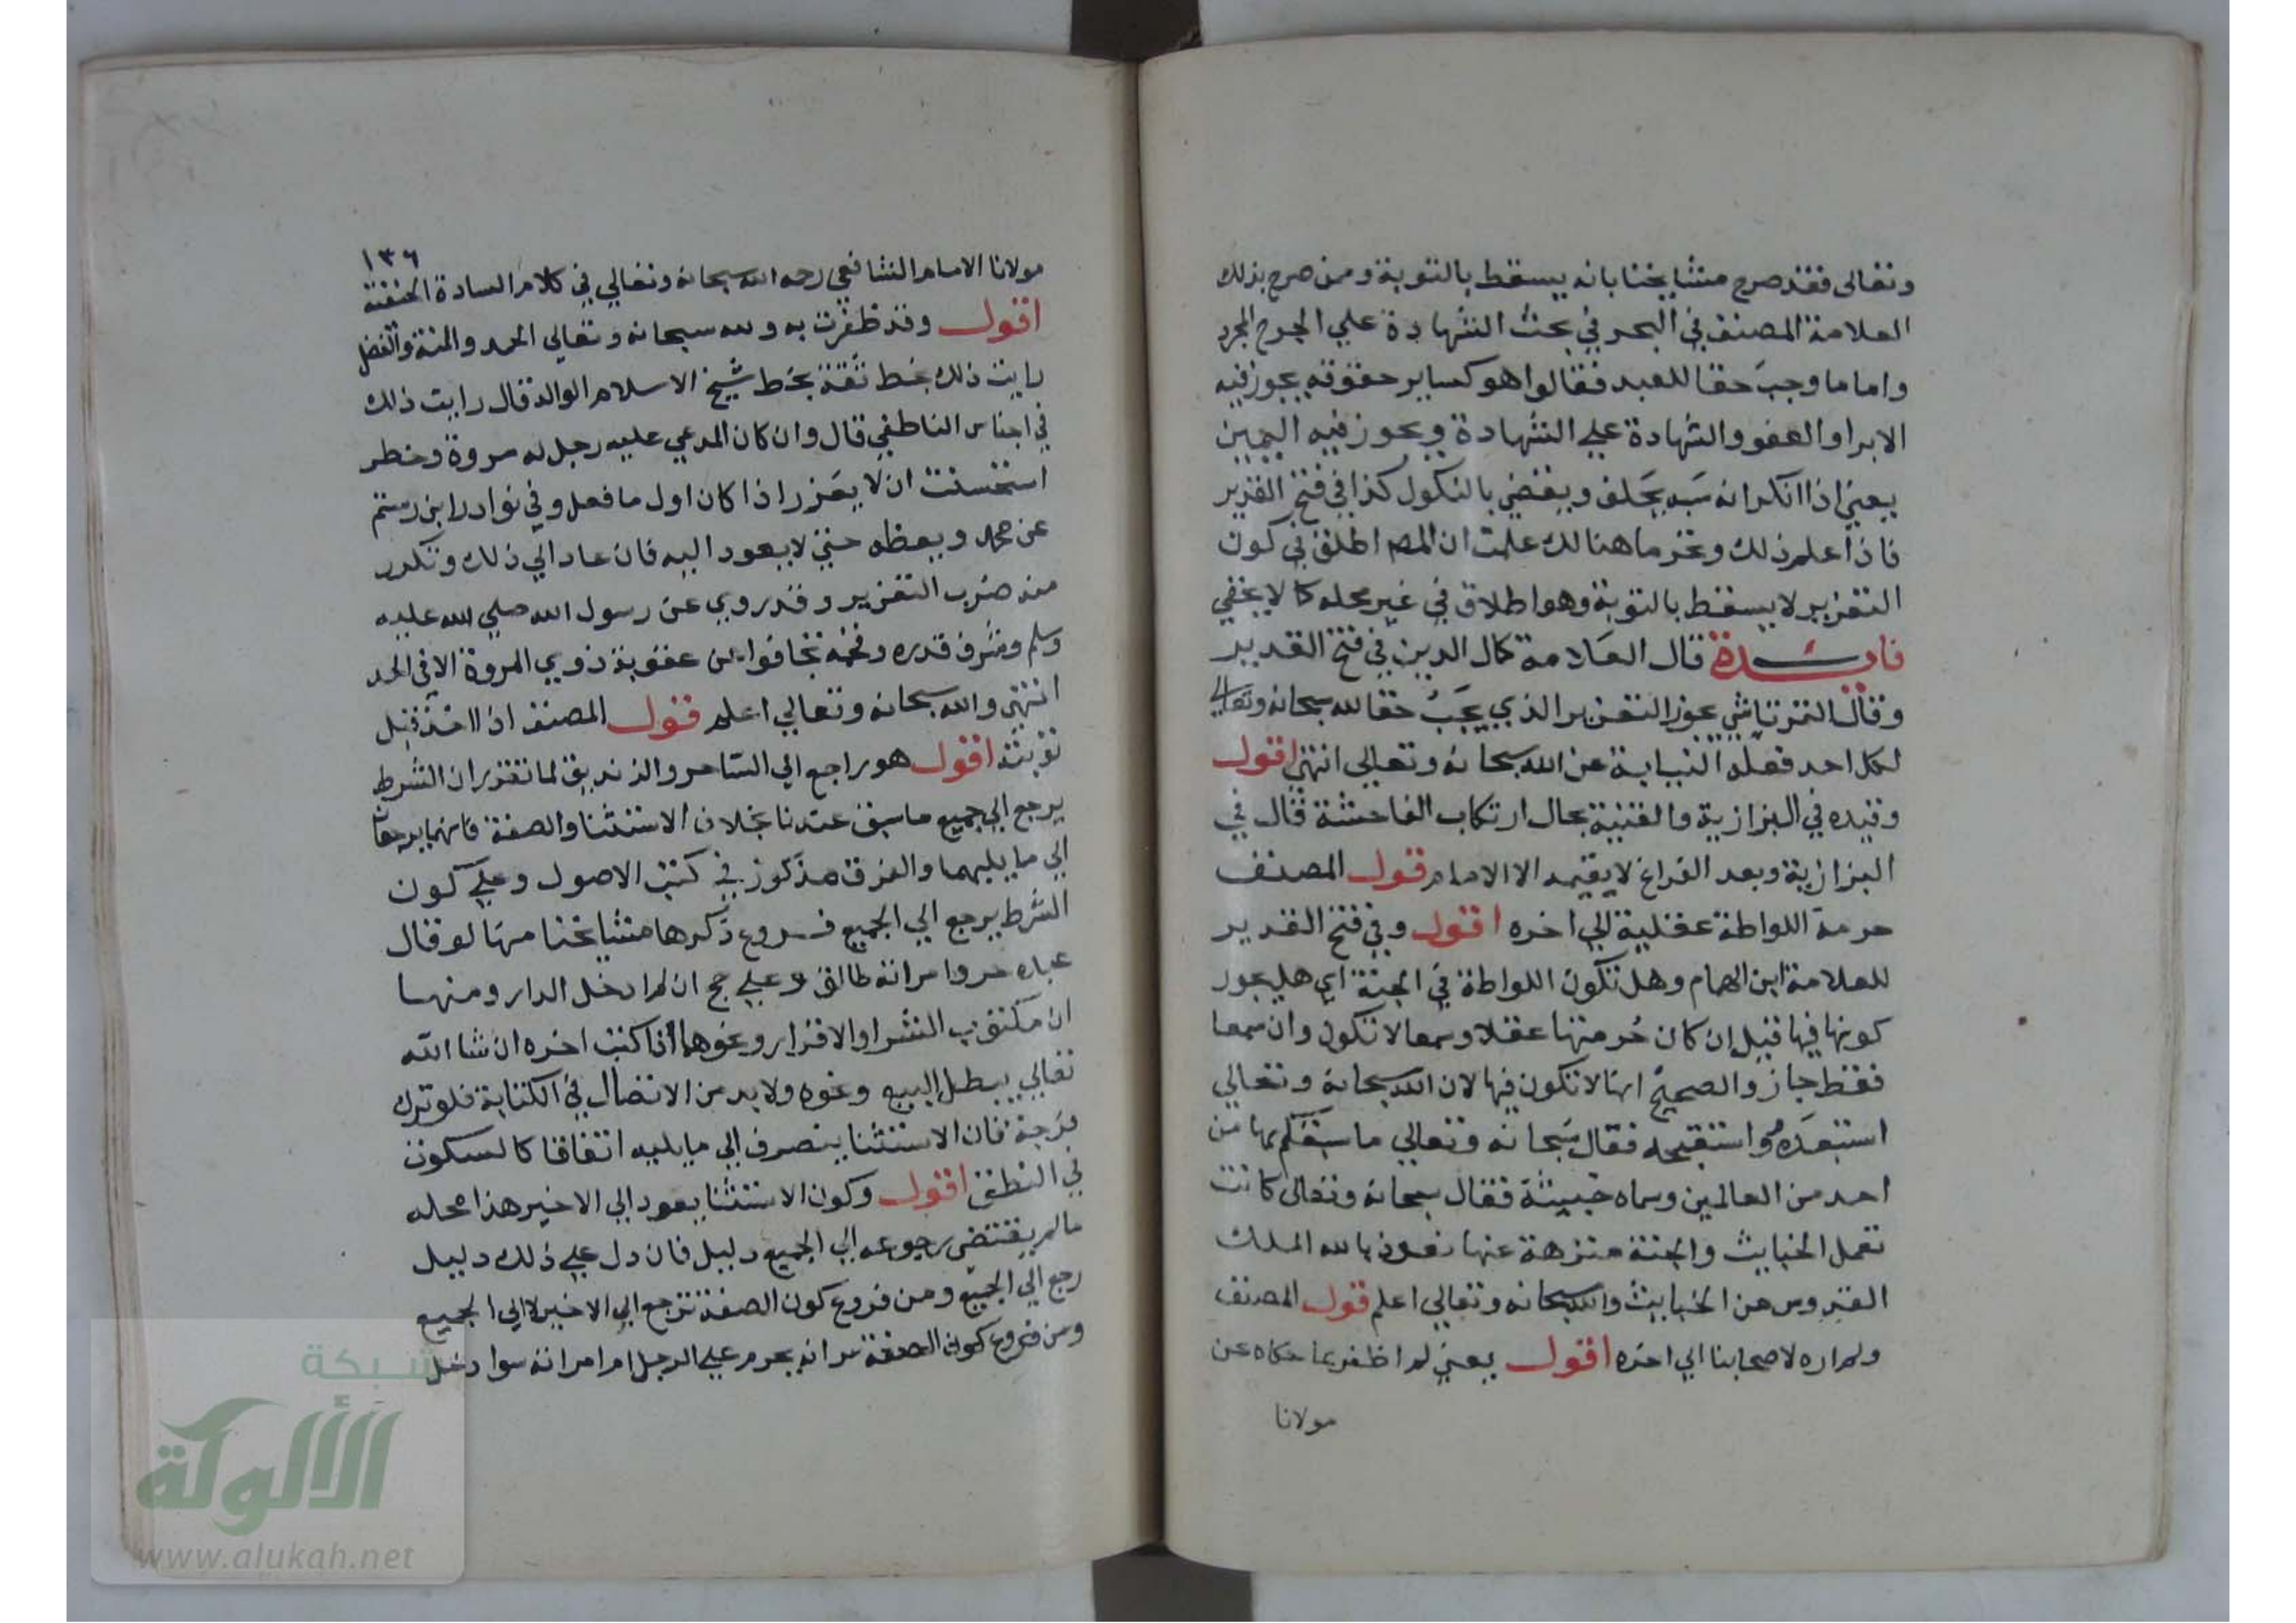 وتعالى فقد صرح مشايخنا بانه يسقط بالتوبة وممن صرح بذلك
العلامة المصنف في البحر في بحث الشهادة علي الجرح المجرد
واما ما وجب حقا للعبد فقالوا هو كساير حقوقه يجوز فيه
الابرا والعفو والشهادة علي الشهادة ويجوز فيه اليمين
يعني اذا انكر انه سبه يحلف ويقضي بالنكول كذا في فتح القدير
فاذا علم ذلك ونحر ما هنالك علمت ان المص اطلق في كون
التعزير لا يسقط بالتوبة وهو اطلاق في غير محله كما لا يخفي
فايدة قال العلامة كمال الدين في فتح القدير
وقال التمرتاشي يجوز التعزير الذي يجب حقا لله سبحانه وتعالي
لكل احد فعله النيابة عن الله سبحانه وتعالي انتهي اقول
وقيده في البزازية والقنية بحال ارتكاب الفاحشة قال في
البزازية وبعد الفراغ لا يقيمه الا الامام قول المصنف
حرمة اللواطة عقلية الي اخره اقول وفي فتح القدير
للعلامة ابن الهمام وهل تكون اللواطة في الجنة اي هل يجوز
كونها فيها قيل ان كان حرمتها عقلا وسمعا لا تكون وان سمعا
فقط جاز والصحيح انها لا تكون فيها لان الله سبحانه وتعالي
استبعده واستقبحه فقال سبحانه وتعالي ما سبقكم بها من
احد من العالمين وسماه خبيثة فقال سبحانه وتعالى كانت
تعمل الخبايث والجنة منزهة عنها نعوذ بالله الملك
القدوس من الخبايث والله سبحانه وتعالي اعلم قول المصنف
ولم اره لاصحابنا الي اخره اقول يعني لم اظفر بما حكاه عن
مولانا
١٣٦
مولانا الامام الشافعي رحمه الله سبحانه وتعالي في كلام السادة الحنفية
اقول وقد ظفرت به ولله سبحانه وتعالي الحمد والمنة والفضل
رايت ذلك بخط ثقة بخط شيخ الاسلام الوالد قال رايت ذلك
في اجناس الناطفي قال وان كان المدعي عليه رجل له مروة وخطر
استحسنت ان لا يعزر اذا كان اول ما فعل وفي نوادر ابن رستم
عن محمد ويعظه حتي لا يعود اليه فان عاد الي ذلك وتكرر
منه ضرب التعزير وقد روي عن رسول الله صلي الله عليه
وسلم وشرف قدره وفخمه تجافوا عن عقوبة ذوي المروة الا في الحد
انتهي والله سبحانه وتعالي اعلم قول المصنف اذا اخذ قبل
توبته اقول هو راجع الي الساحر والزنديق لما تقرر ان الشرط
يرجع الي جميع ما سبق عندنا بخلاف الاستثنا والصفة فانهما يرجعان
الي ما يليهما والفرق مذكور في كتب الاصول وعلي كون
الشرط يرجع الي الجميع فروع ذكرها مشايخنا منها لو قال
عبده حر وامراته طالق وعلي حج ان لم ادخل الدار ومنها
ان مكتوب الشرا والاقرار ونحوهما اذا كتب اخره ان شا الله
تعالي يبطل البيع ونحوه ولا بد من الاتصال في الكتابة فلو ترك
فرجة فان الاستثنا ينصرف الي ما يليه اتفاقا كالسكوت
في النطق اقول وكون الاستثنا يعود الي الاخير هذا محله
ما لم يقتضي رجوعه الي الجميع دليل فان دل علي ذلك دليل
رجع الي الجميع ومن فروع كون الصفة ترجع الي الاخير لا الي الجميع
ومن فروع كون الصفة انه يحرم علي الرجل ام امراته سوا دخل
شبكة
الألوكة
www.alukah.net